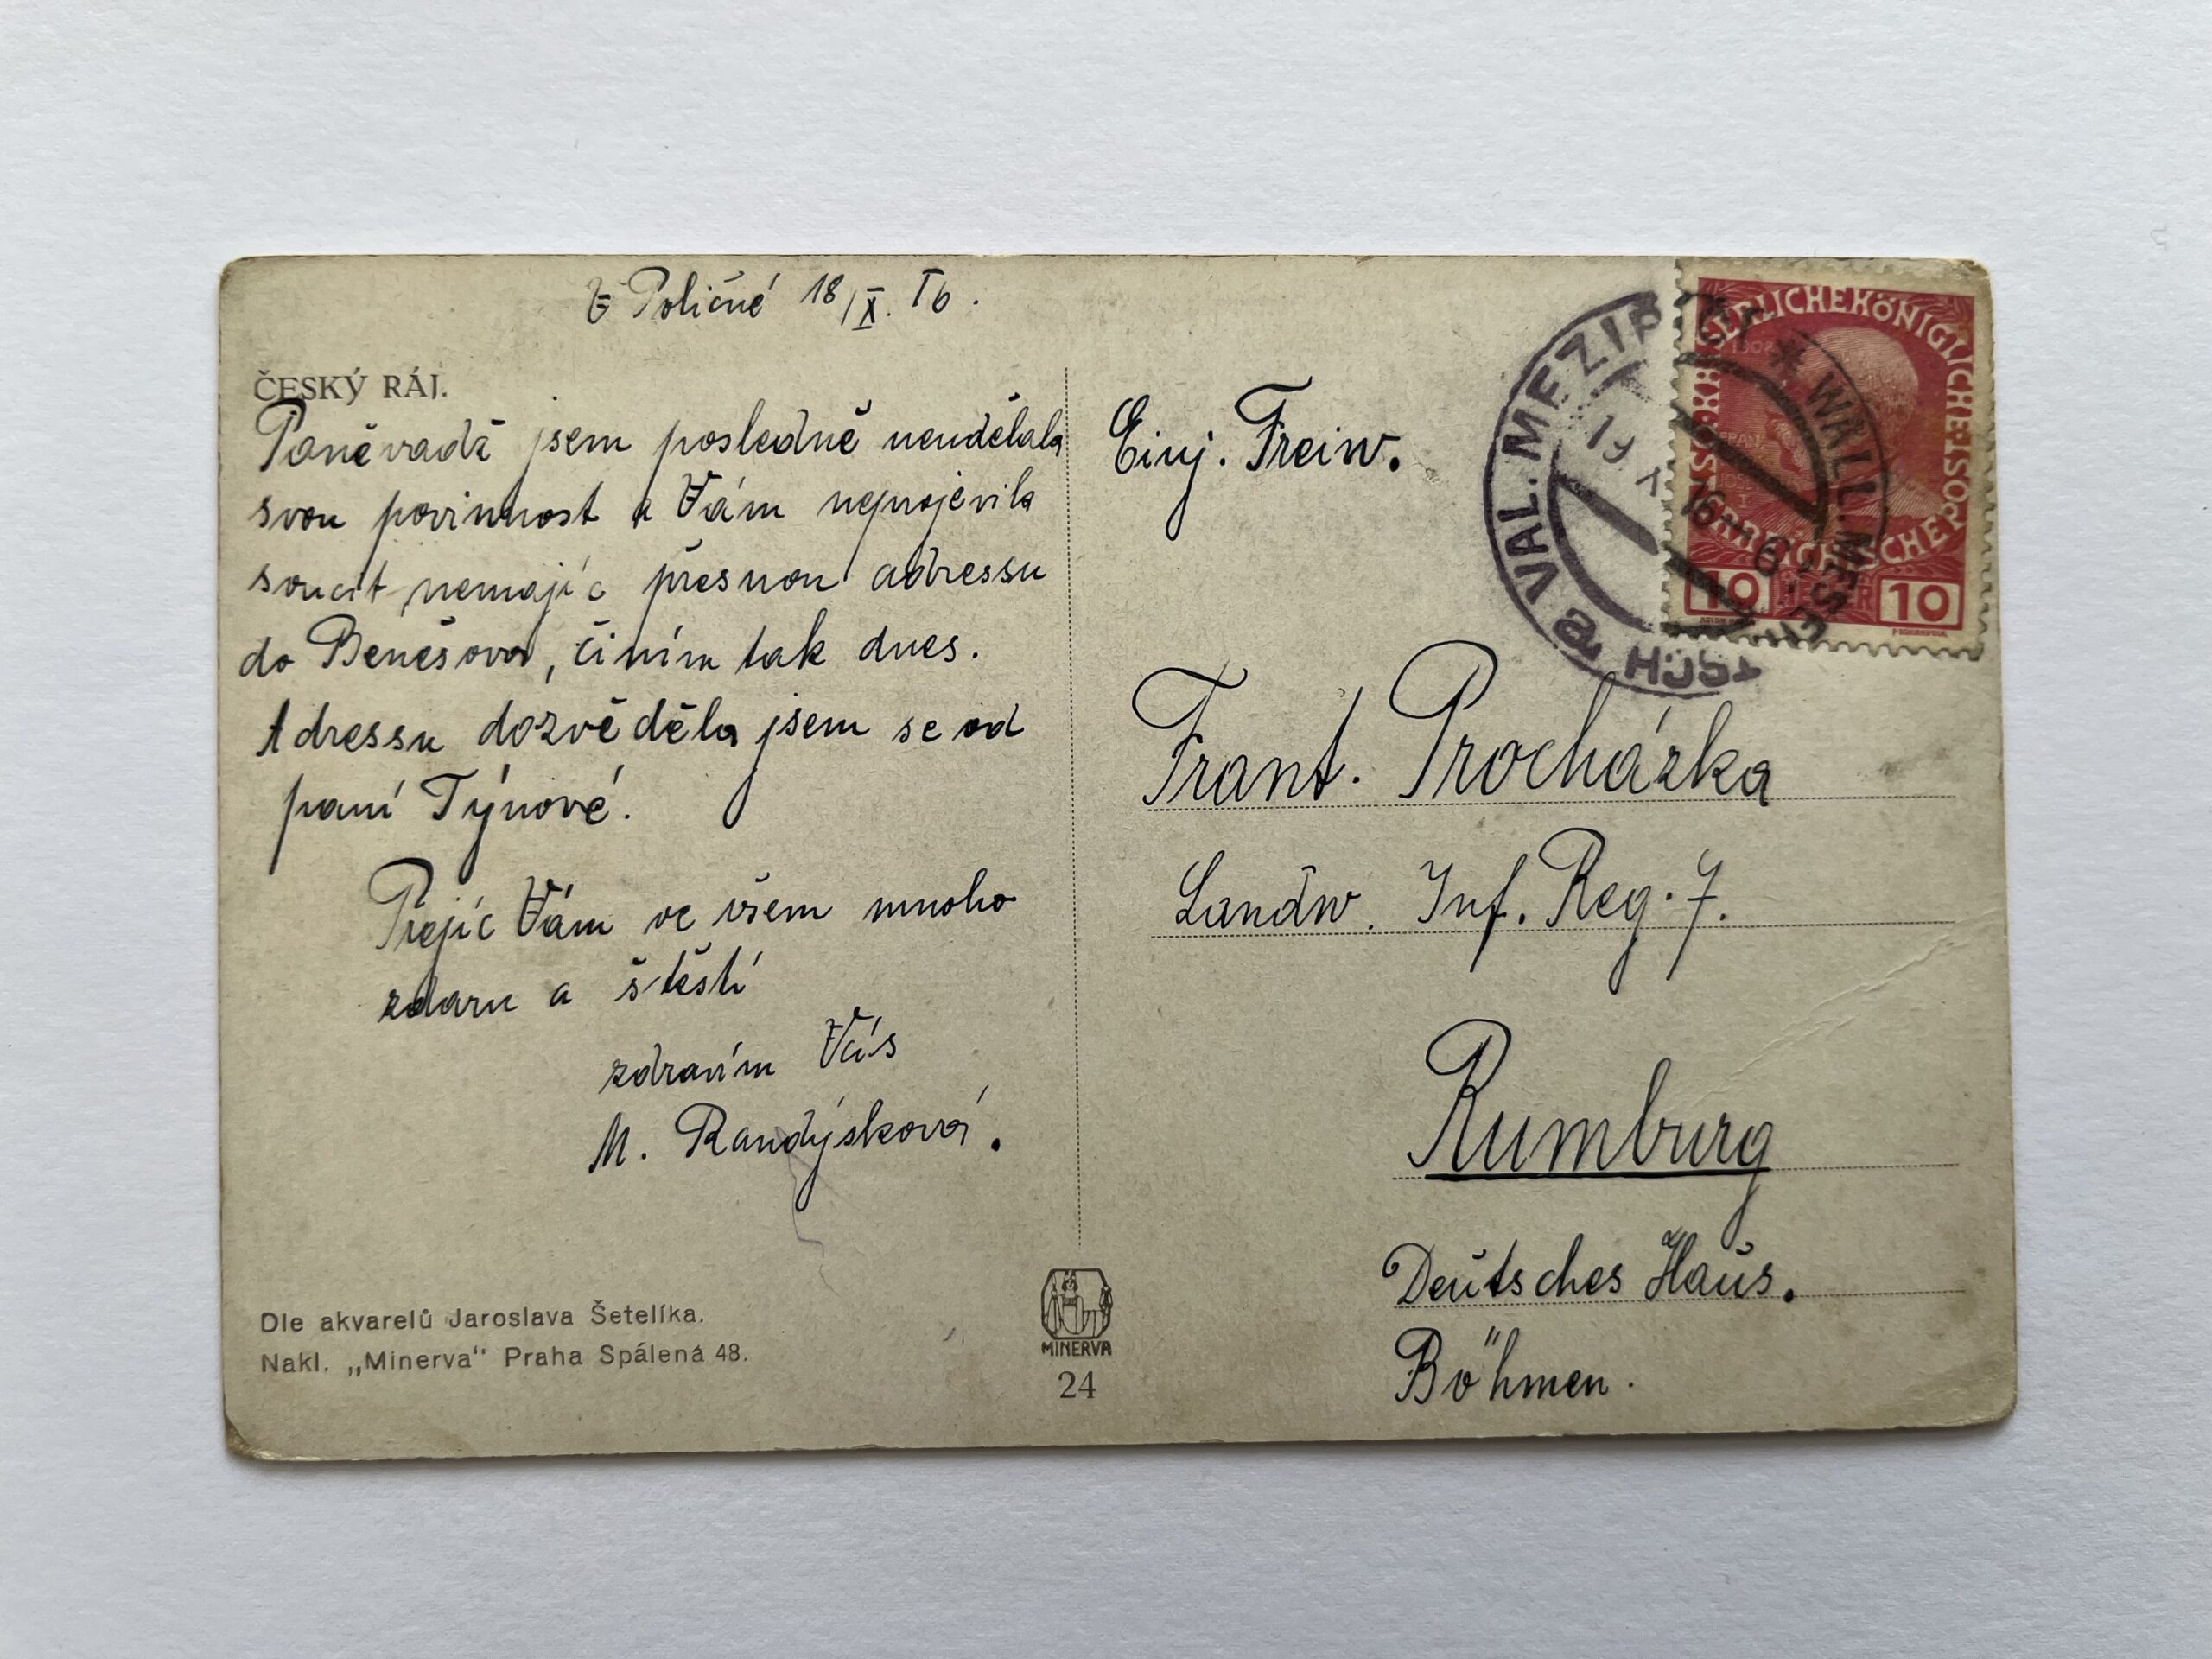 V Poličné 18/X. 16.
ČESKÝ RÁJ.
Poněvadž jsem posledně neudělala
svou povinnost a Vám neprojevila
soucit, nemajíc přesnou adressu
do Benešova, činím tak dnes.
Adressu dozvěděla jsem se od
paní Týnové.
Přejíc Vám ve všem mnoho
zdaru a štěstí
zdravím Vás
M. Randýsková.
Dle akvarelů Jaroslava Šetelíka.
Nakl. „Minerva" Praha Spálená 48.
MINERVA
24
Einj. Freiw.
Frant. Procházka
Landw. Inf. Reg. 7.
Rumburg
Deutsches Haus.
Böhmen.
VAL. MEZIŘ * WALL. MESE
19 X 16 - 6
a
KAISERLICHE KÖNIGLICHE POST
ÖSTERREICHISCHE
1908
10 HELLER 10